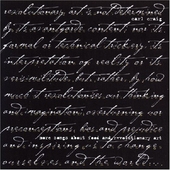 revolutionary art is not determined
carl craig
by its avant-garde content, nor its
formal or technical trickery, its
interpretation of reality or its
verisimilitude, but, rather, by how
much it revolutionizes our thinking
and imagination, overturning our
preconceptions, bias, and prejudice
more songs about food and revolutionary art
and inspiring us to change
ourselves and the world